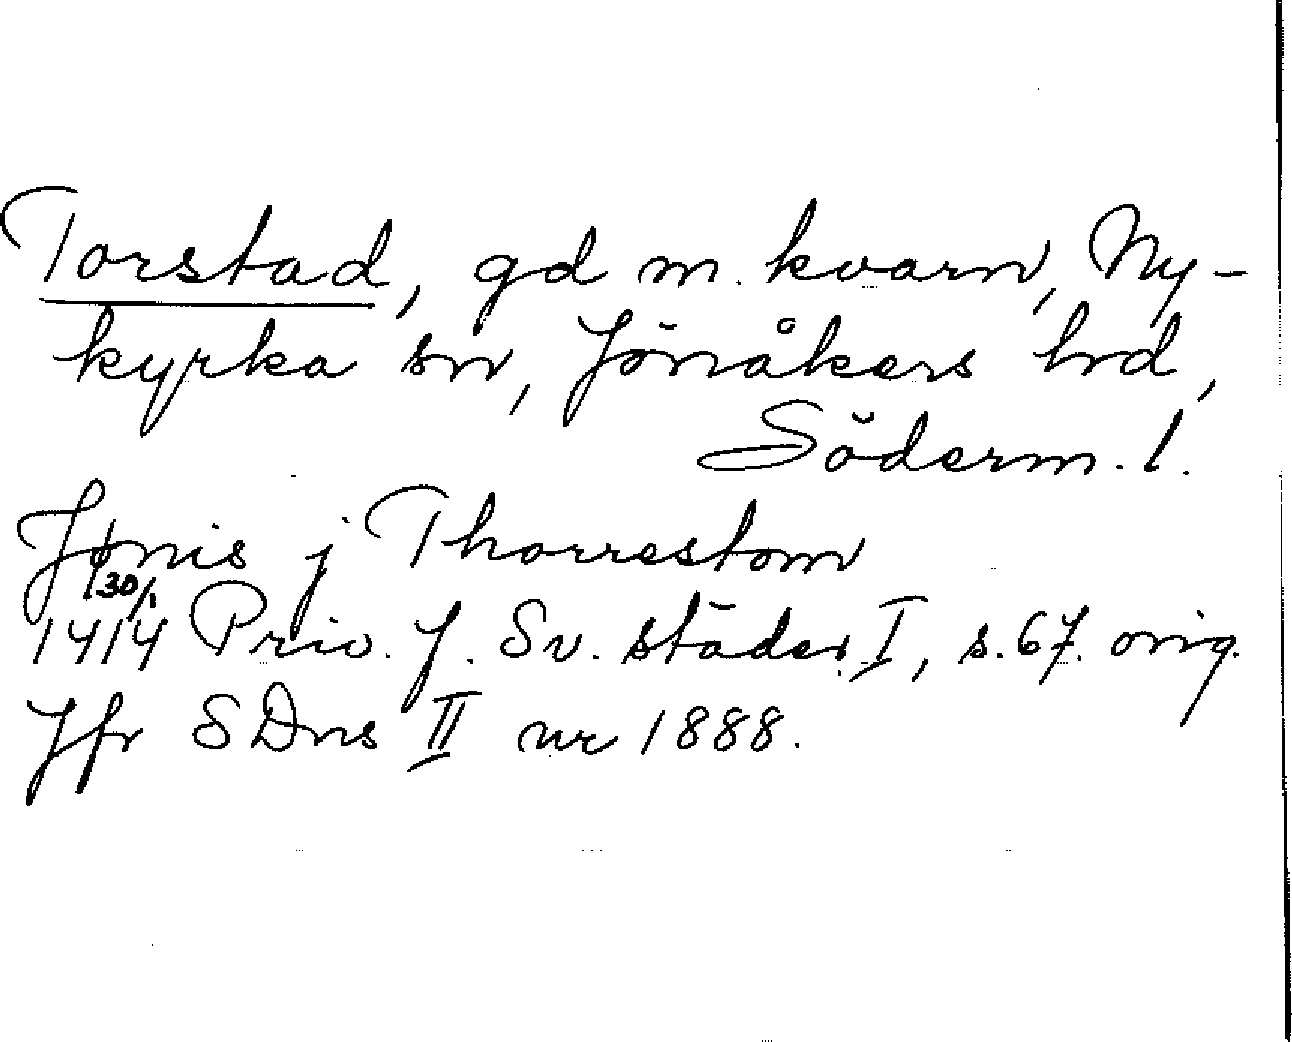 Torstad, gd m. kvarn, Ny-
kyrka sn, Jönåkers hd,
Söderm. l.
Jønis j Thorrestom
30/1
1414 Priv. f. Sv. städer I, s. 67. orig.
Jfr SDns II nr 1888.